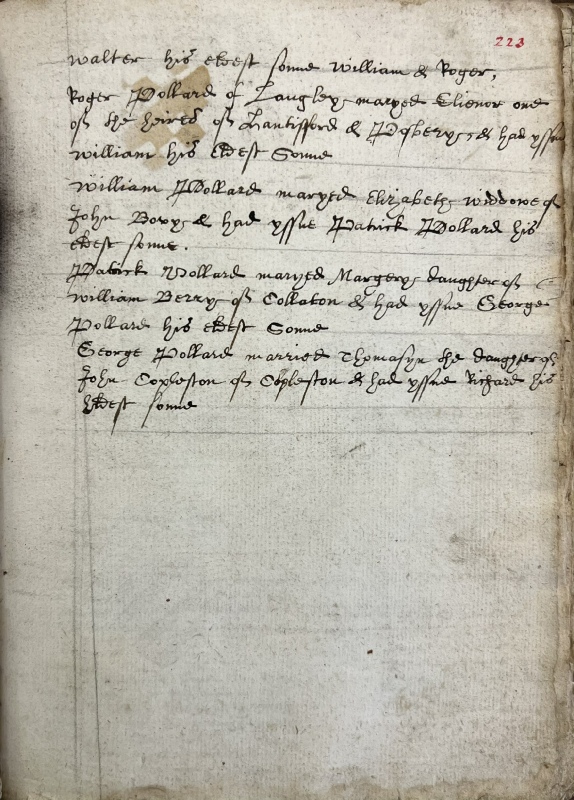 223
Walter his eldest sonne William & Roger,
Roger Pollard of Langley maryed Elienor one
of the heires of & had yssue
William his eldest Sonne
William Pollard maryed Elizabeth widdowe of
John Bovy & had yssue Patrick Pollard his
eldest sonne.
Patrick Pollard maryed Margery daughter of
William Berry of Collaton & had yssue George
Pollard his eldest Sonne
George Pollard married Thomasyn the daughter of
John Copleston of Copleston & had yssue Richard his
eldest sonne